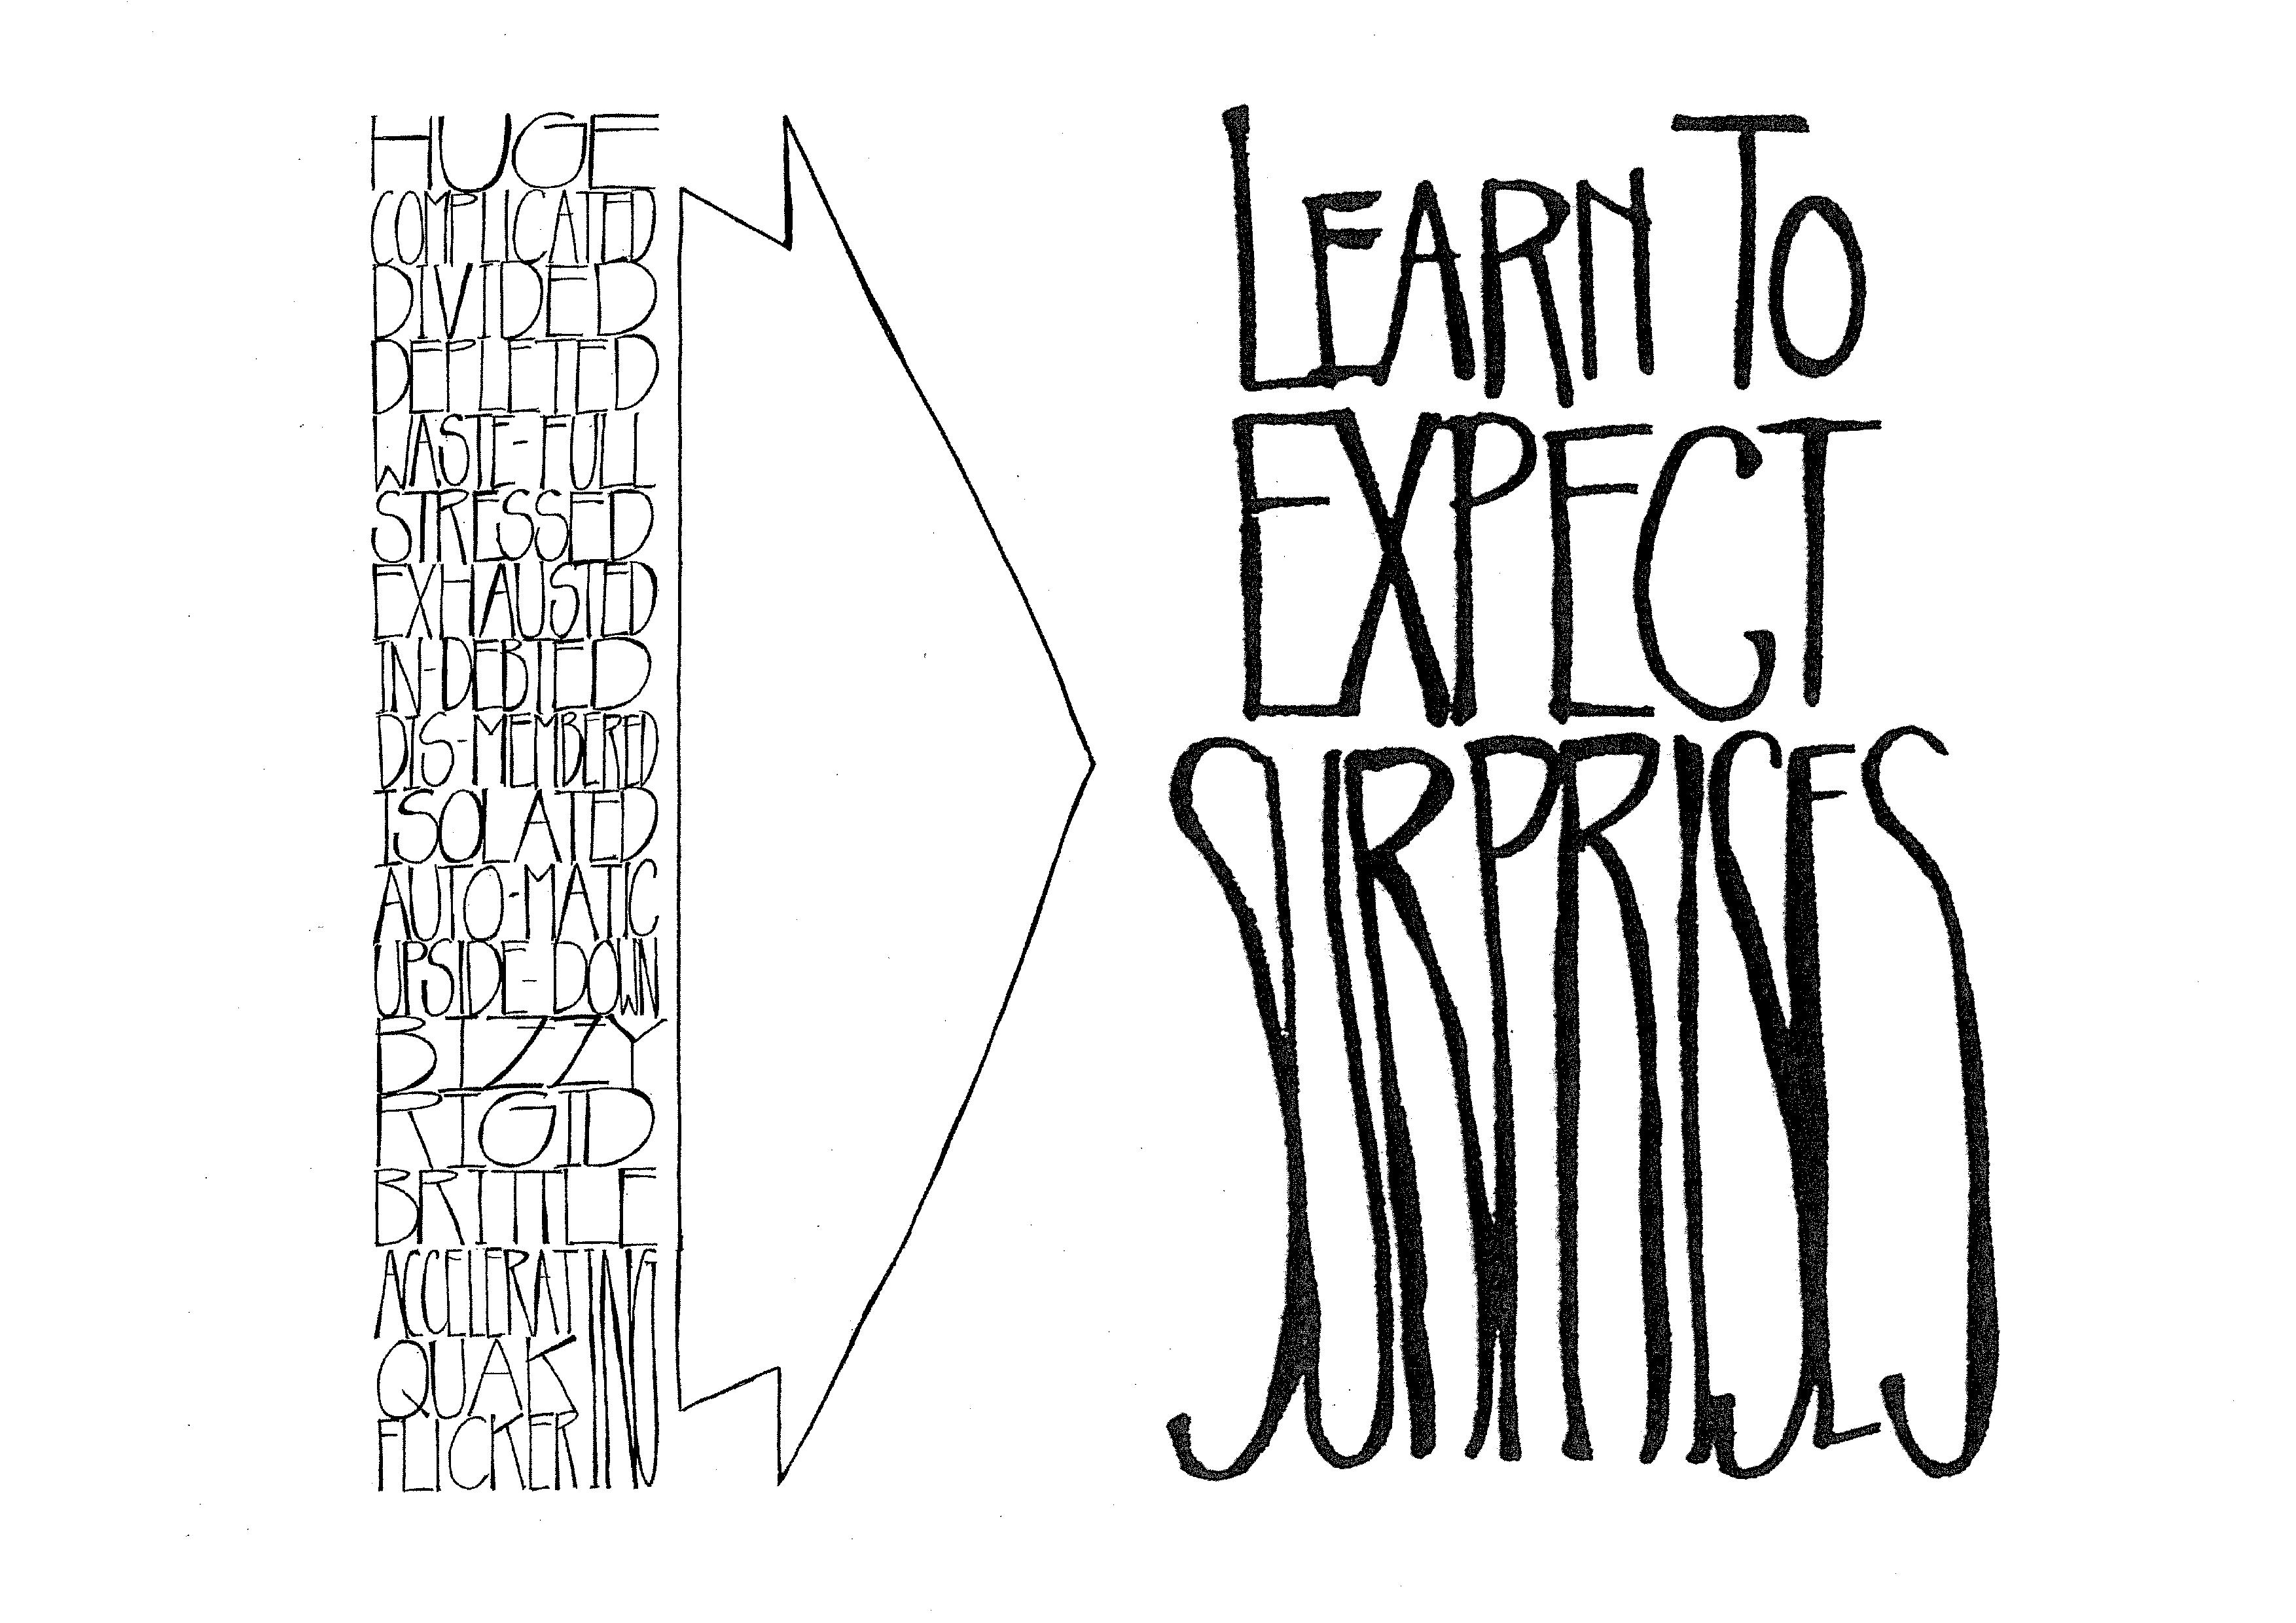 HUGE
COMPLICATED
DIVIDED
DEPLETED
WASTE-FULL
STRESSED
EXHAUSTED
IN-DEBTED
DIS-MEMBERED
ISOLATED
AUTO-MATIC
UPSIDE-DOWN
BIZZY
RIGID
BRITTLE
ACCELERATING
QUAKING
FLICKERING
LEARN TO
EXPECT
SURPRISES